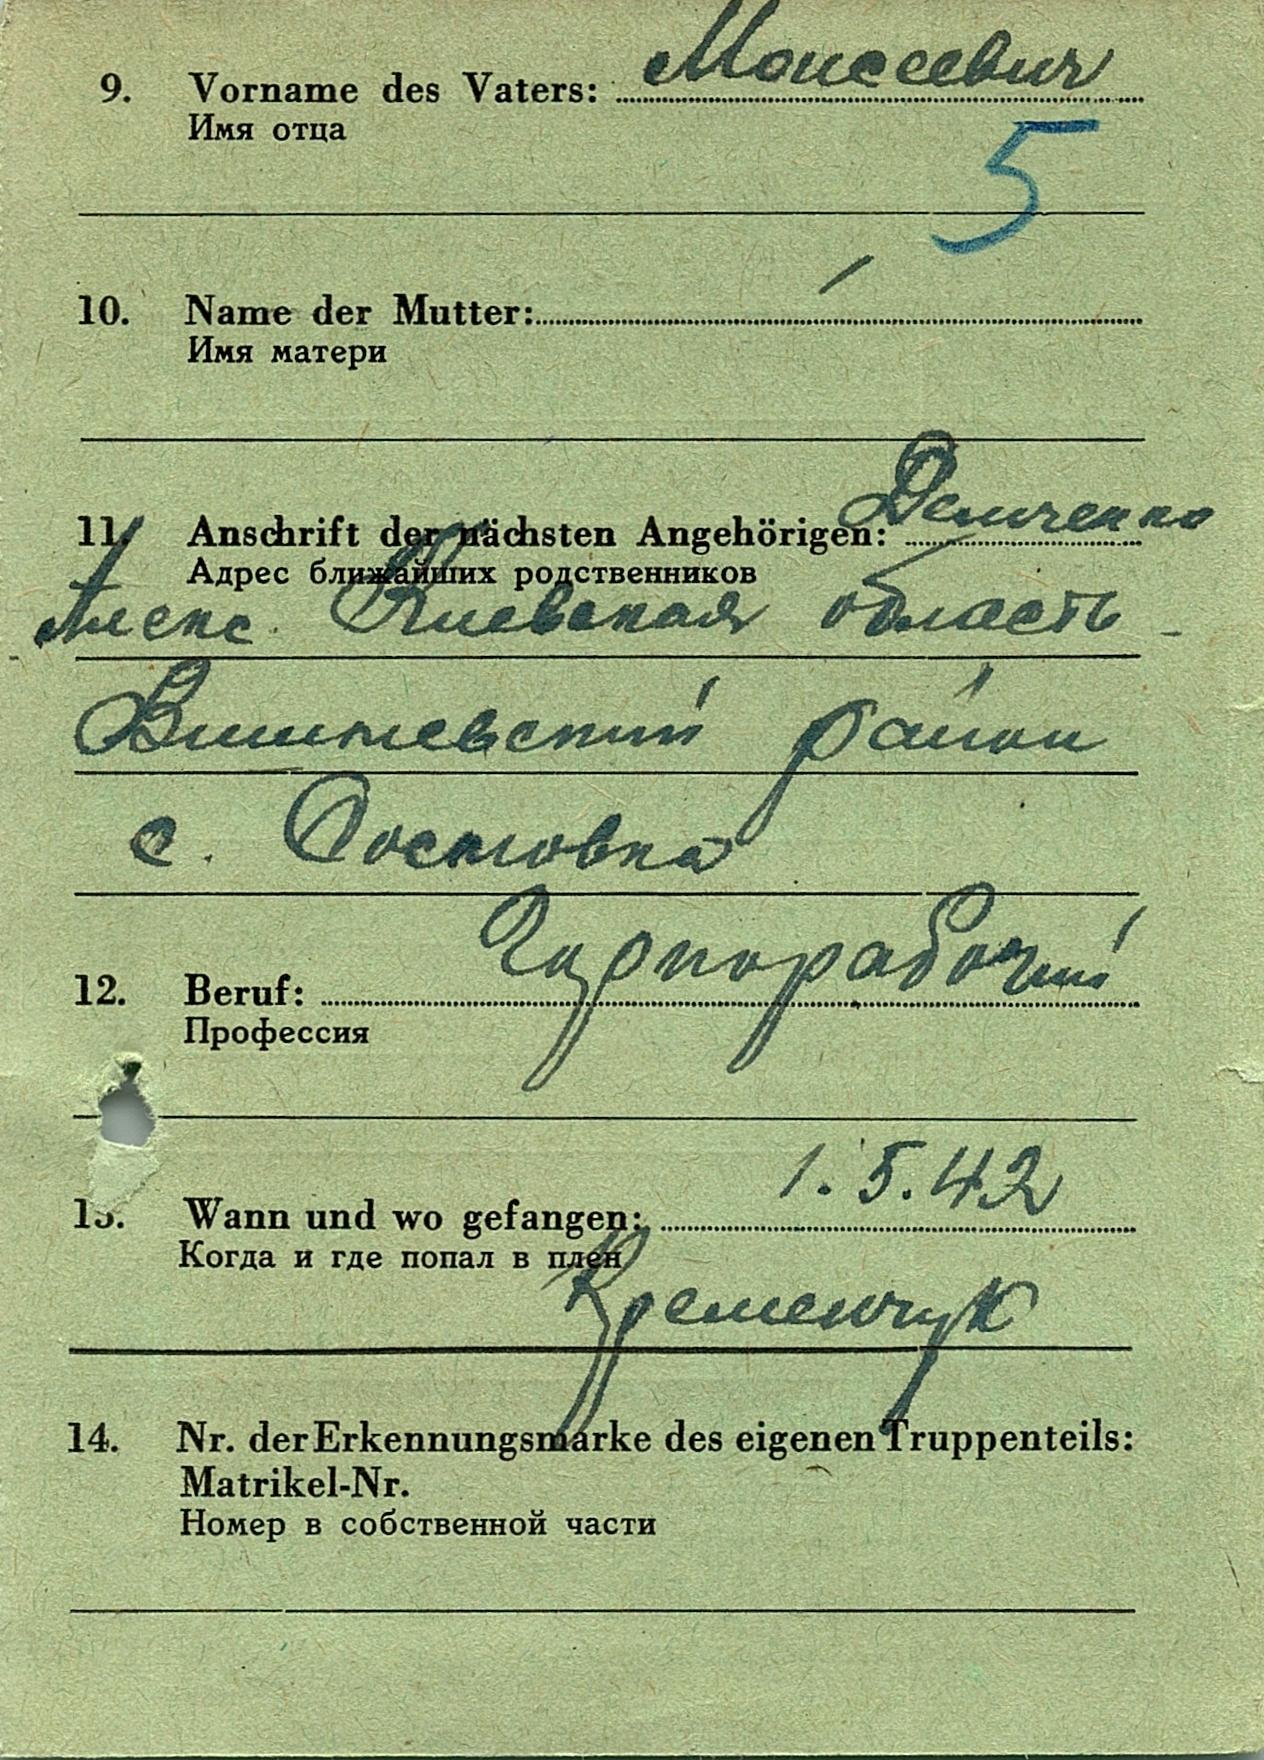 9. Vorname des Vaters: Моисеевич
Имя отца
5
10. Name der Mutter: /
Имя матери
11. Anschrift der nächsten Angehörigen: Демченко
Адрес ближайших родственников
Алекс. Киевская область
район
с.
12. Beruf: Чорнорабочий
Профессия
13. Wann und wo gefangen: 1.5.42
Когда и где попал в плен
Кременчук
14. Nr. der Erkennungsmarke des eigenen Truppenteils:
Matrikel-Nr.
Номер в собственной части